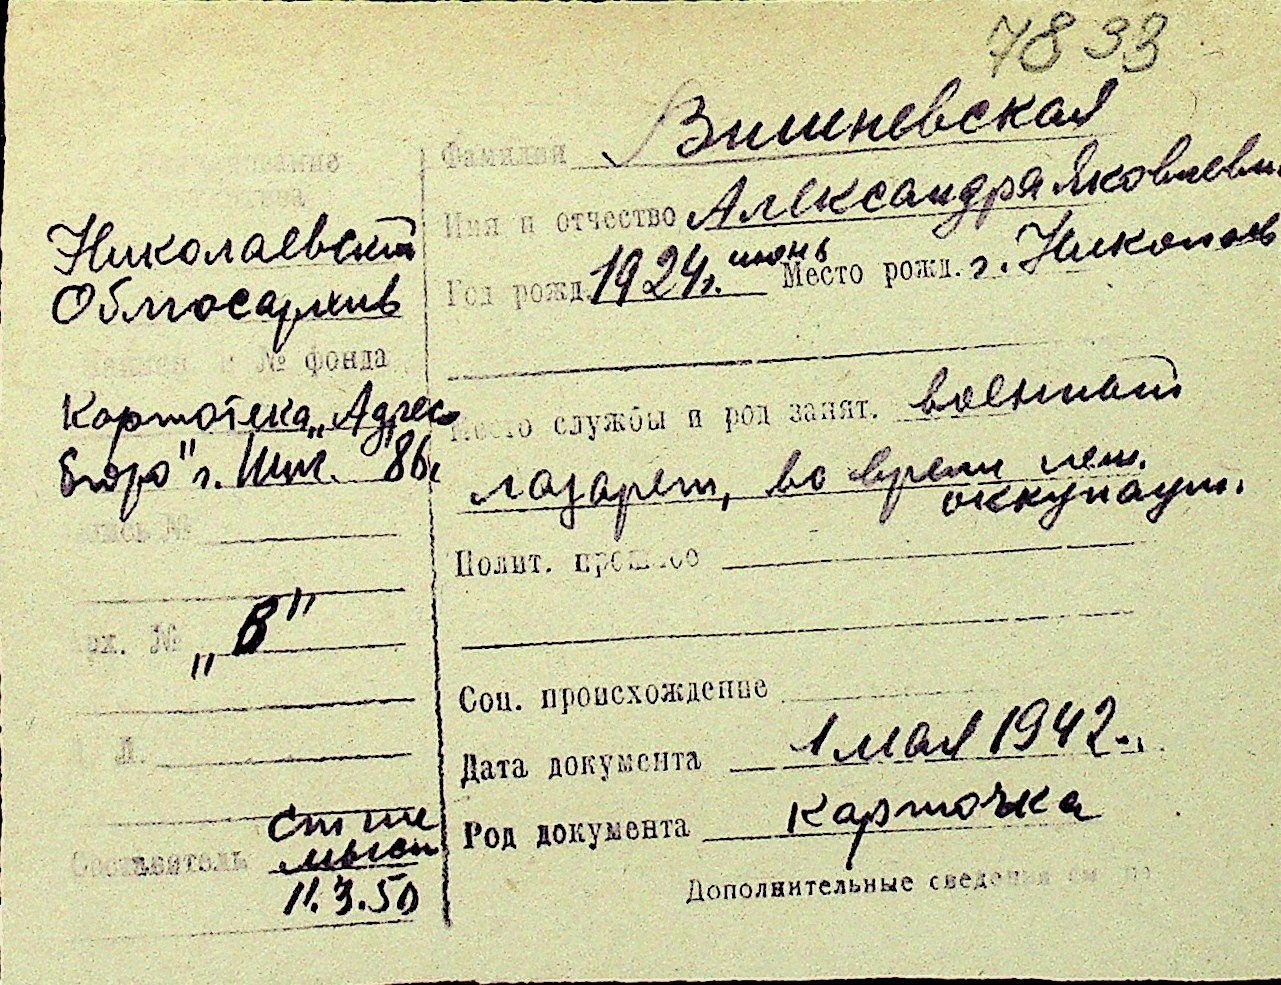 7833
Фамилия Вишневская
Имя и отчество Александра Яковлевн
Год рожд. 1924г. июнь Место рожд. г. Николаев
Место службы и род занят. военный
лазарет, во время нем.
оккупации.
Полит. прошлое
Соц. происхождение
Дата документа 1 мая 1942г.
Род документа Карточка
Дополнительные сведения см на
Николаевский
Облгосархив
№ фонда
Картотека „Адрес
бюро" г. Ник.
Опись №
Арх. № „В"
Л.
Составитель
11.3.50